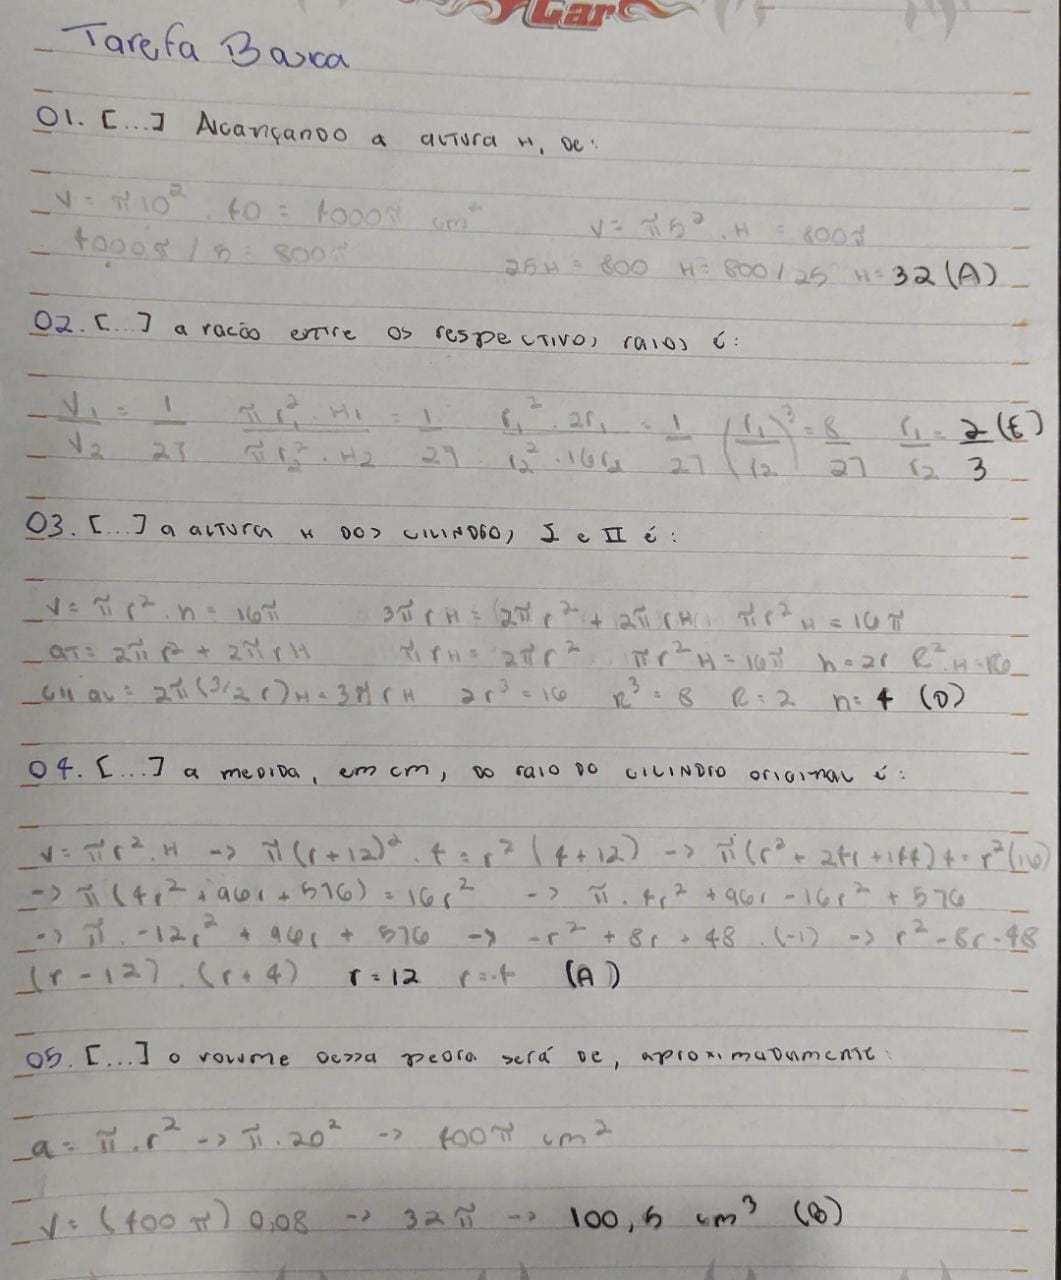 Car
Tarefa Basica
01. [...] Alcançando a altura H, de:
V = π10² . 40 = 4000π cm²
4000π / 5 = 800π
V = π5² . H = 800π
25H = 800 H = 800 / 25 H = 32 (A)
02. [...] a racão entre os respectivos raios é:
V1/V2 = 1/27 πr1² . H1/πr2² . H2 = 1/27 r1² . 2r1/r2² . 16r2 = 1/27 (r1/r2)³ = 8/27 r1/r2 = 2/3 (E)
03. [...] a altura H dos cilindros I e II é:
V = πr² . h = 16π 3πrH = (2πr² + 2πrH) πr²H = 16π
aT = 2πr² + 2πrH πrH = 2πr² πr²H = 16π h = 2r R².H = 16
aL = 2π(3/2 r)H = 3πrH 2r³ = 16 R³ = 8 R = 2 h = 4 (D)
04. [...] a medida, em cm, do raio do cilindro original é:
V = πr².H -> π(r+12)² . 4 = r² (4+12) -> π(r² + 24r + 144)4 = r²(16)
-> π(4r² + 96r + 576) = 16r² -> π . 4r² + 96r - 16r² + 576
-> π . -12r² + 96r + 576 -> -r² + 8r + 48 .(-1) -> r² - 8r - 48
(r - 12) . (r + 4) r = 12 r = -4 (A)
05. [...] o volume dessa pedra será de, aproximadamente:
a = π.r² -> π.20² -> 400π cm²
V = (400π) 0,08 -> 32π -> 100,5 cm³ (B)